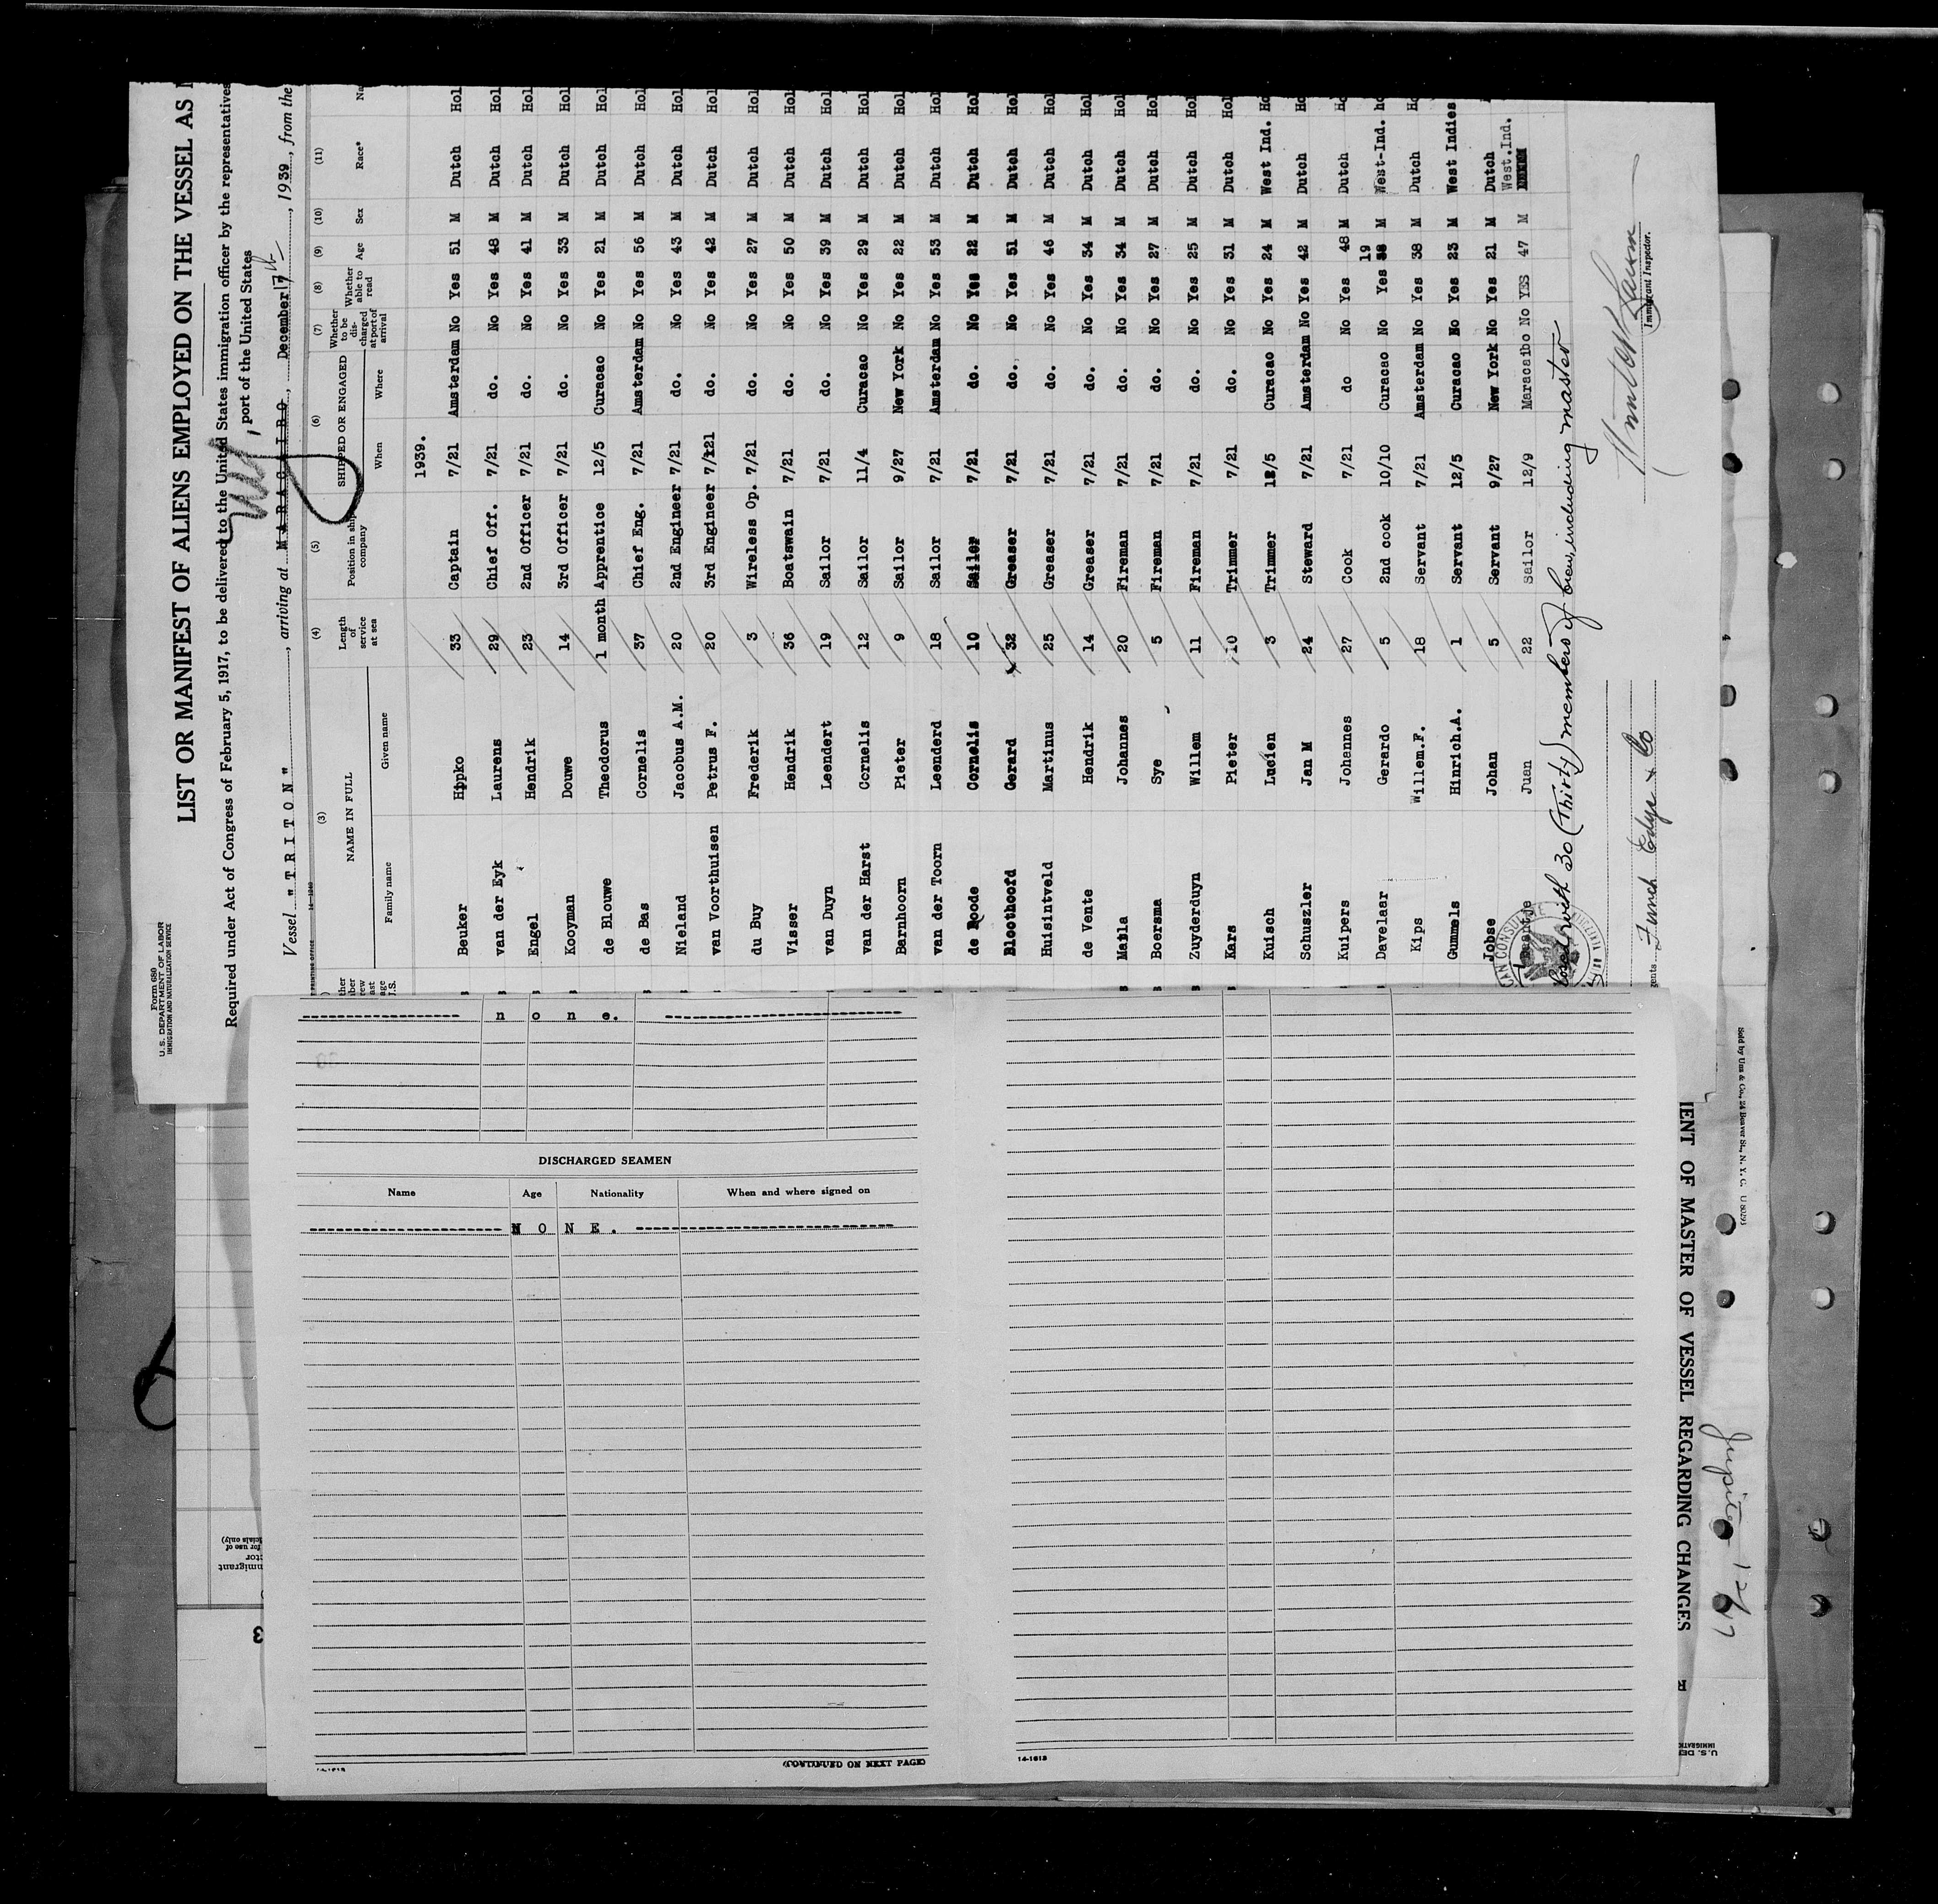 Form 680
U. S. DEPARTMENT OF LABOR
IMMIGRATION AND NATURALIZATION SERVICE
LIST OR MANIFEST OF ALIENS EMPLOYED ON THE VESSEL AS
Required under Act of Congress of February 5, 1917, to be delivered to the United States immigration officer by the representatives
port of the United States
Vessel "TRITON", arriving at MARACAIBO, December 17th, 1939, from the
(3) (4) (5) (6) (7) (8) (9) (10) (11)
NAME IN FULL Length of service at sea Position in ship company SHIPPED OR ENGAGED Whether to be discharged at port of arrival Whether able to read Age Sex Race*
Family name Given name When Where
1939.
Beuker Hipko 33 Captain 7/21 Amsterdam No Yes 51 M Dutch Hol
van der Eyk Laurens 29 Chief Off. 7/21 do. No Yes 48 M Dutch Hol
Engel Hendrik 23 2nd Officer 7/21 do. No Yes 41 M Dutch Hol
Kooyman Douwe 14 3rd Officer 7/21 do. No Yes 33 M Dutch Hol
de Blouwe Theodorus 1 month Apprentice 12/5 Curacao No Yes 21 M Dutch Hol
de Bas Cornelis 37 Chief Eng. 7/21 Amsterdam No Yes 56 M Dutch Hol
Nieland Jacobus A.M. 20 2nd Engineer 7/21 do. No Yes 43 M Dutch Hol
van Voorthuisen Petrus F. 20 3rd Engineer 7/21 do. No Yes 42 M Dutch Hol
du Buy Frederik 3 Wireless Op. 7/21 do. No Yes 27 M Dutch Hol
Visser Hendrik 36 Boatswain 7/21 do. No Yes 50 M Dutch Hol
van Duyn Leendert 19 Sailor 7/21 do. No Yes 39 M Dutch Hol
van der Harst Cornelis 12 Sailor 11/4 Curacao No Yes 29 M Dutch Hol
Barnhoorn Pieter 9 Sailor 9/27 New York No Yes 22 M Dutch Hol
van der Toorn Leenderd 18 Sailor 7/21 Amsterdam No Yes 53 M Dutch Hol
de Roode Cornelis 10 Sailor 7/21 do. No Yes 22 M Dutch Hol
Bloothoofd Gerard 32 Greaser 7/21 do. No Yes 51 M Dutch Hol
Huisintveld Martinus 25 Greaser 7/21 do. No Yes 46 M Dutch Hol
de Vente Hendrik 14 Greaser 7/21 do. No Yes 34 M Dutch Hol
Matla Johannes 20 Fireman 7/21 do. No Yes 34 M Dutch Hol
Boersma Sye 5 Fireman 7/21 do. No Yes 27 M Dutch Hol
Zuyderduyn Willem 11 Fireman 7/21 do. No Yes 25 M Dutch Hol
Kars Pieter 10 Trimmer 7/21 do. No Yes 31 M Dutch Hol
Kuisch Lucien 3 Trimmer 12/5 Curacao No Yes 24 M West Ind. Ho
Schuszler Jan M 24 Steward 7/21 Amsterdam No Yes 42 M Dutch Ho
Kuipers Johannes 27 Cook 7/21 do No Yes 48 M Dutch Ho
Davelaar Gerardo 5 2nd cook 10/10 Curacao No Yes 19 M West-Ind. ho
Kips Willem.F. 18 Servant 7/21 Amsterdam No Yes 38 M Dutch Ho
Gummels Hinrich.A. 1 Servant 12/5 Curacao No Yes 23 M West Indies
Jobse Johan 5 Servant 9/27 New York No Yes 21 M Dutch
Juan 22 Sailor 12/9 Maracaibo No YES 47 M West.Ind.
with 30 (Thirty) members of crew, including master
Immigrant Inspector.
Funch Edye & Co
n o n e.
DISCHARGED SEAMEN
Name Age Nationality When and where signed on
N O N E.
(CONTINUED ON NEXT PAGE)
14-1613
IENT OF MASTER OF VESSEL REGARDING CHANGES
Sold by Unz & Co., 24 Beaver St., N. Y. C.
Jupiter